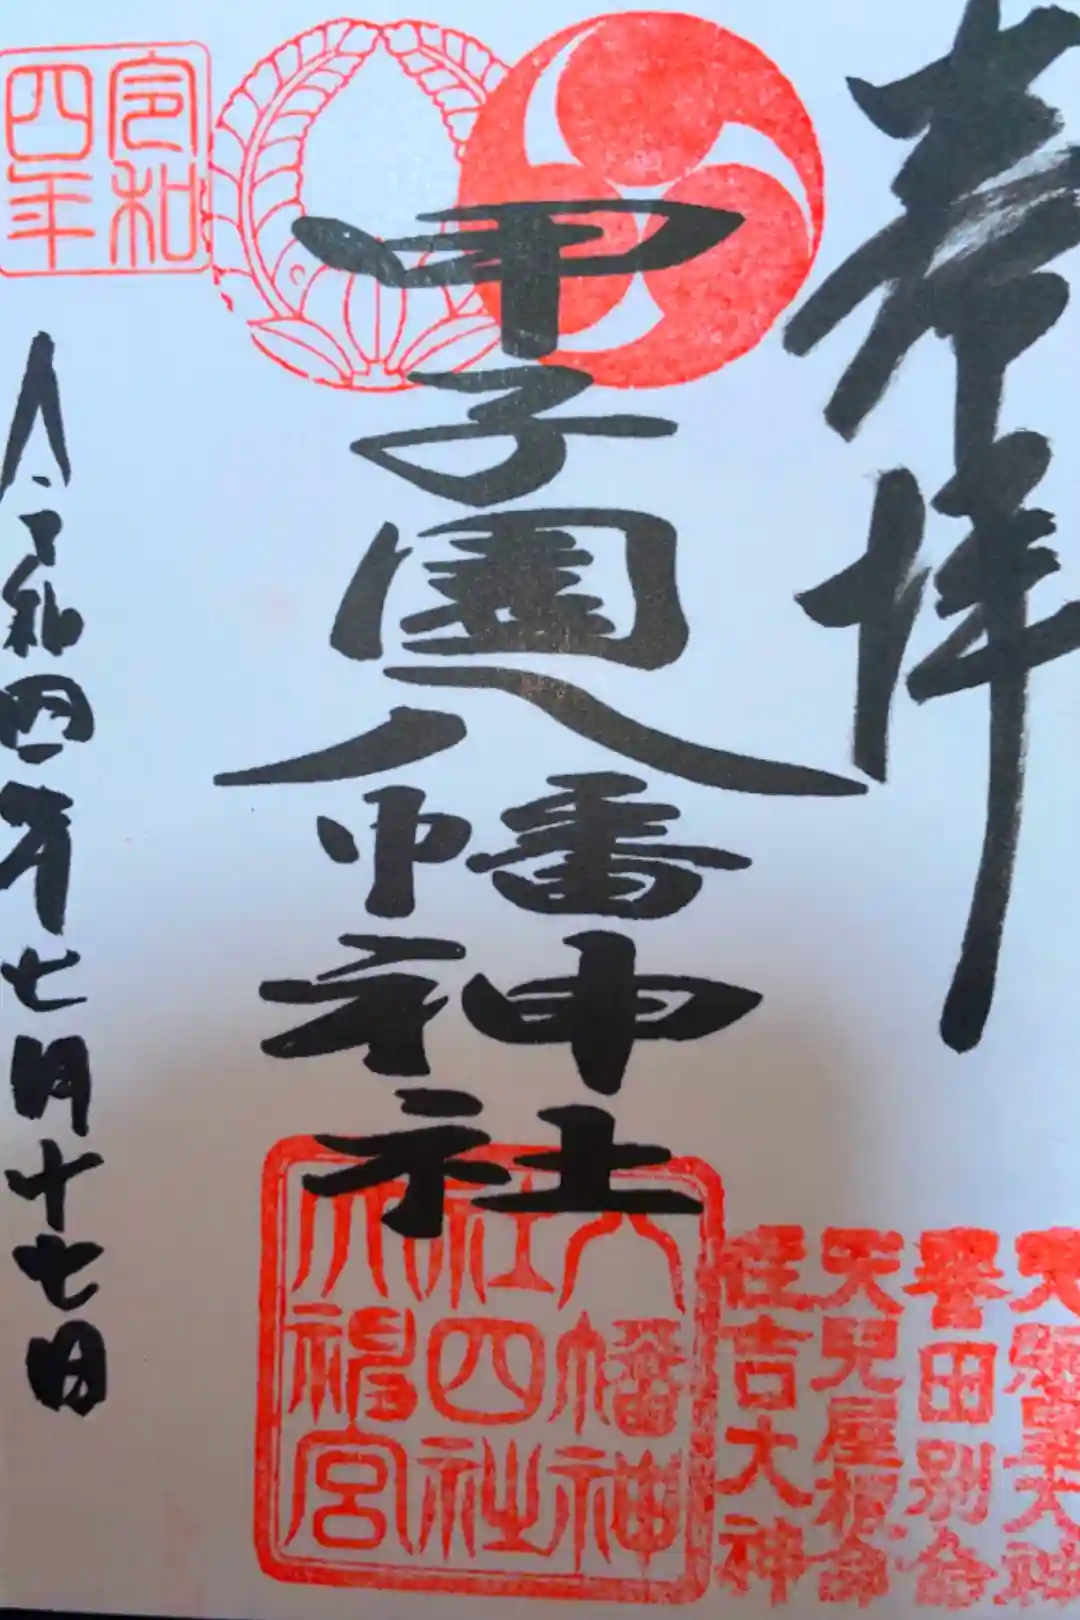 奉拝
甲子園八幡神社
令和
四年
令和四年七月十七日
天照皇大神
誉田別命
天児屋根命
住吉大神
八幡神
社四社
宮